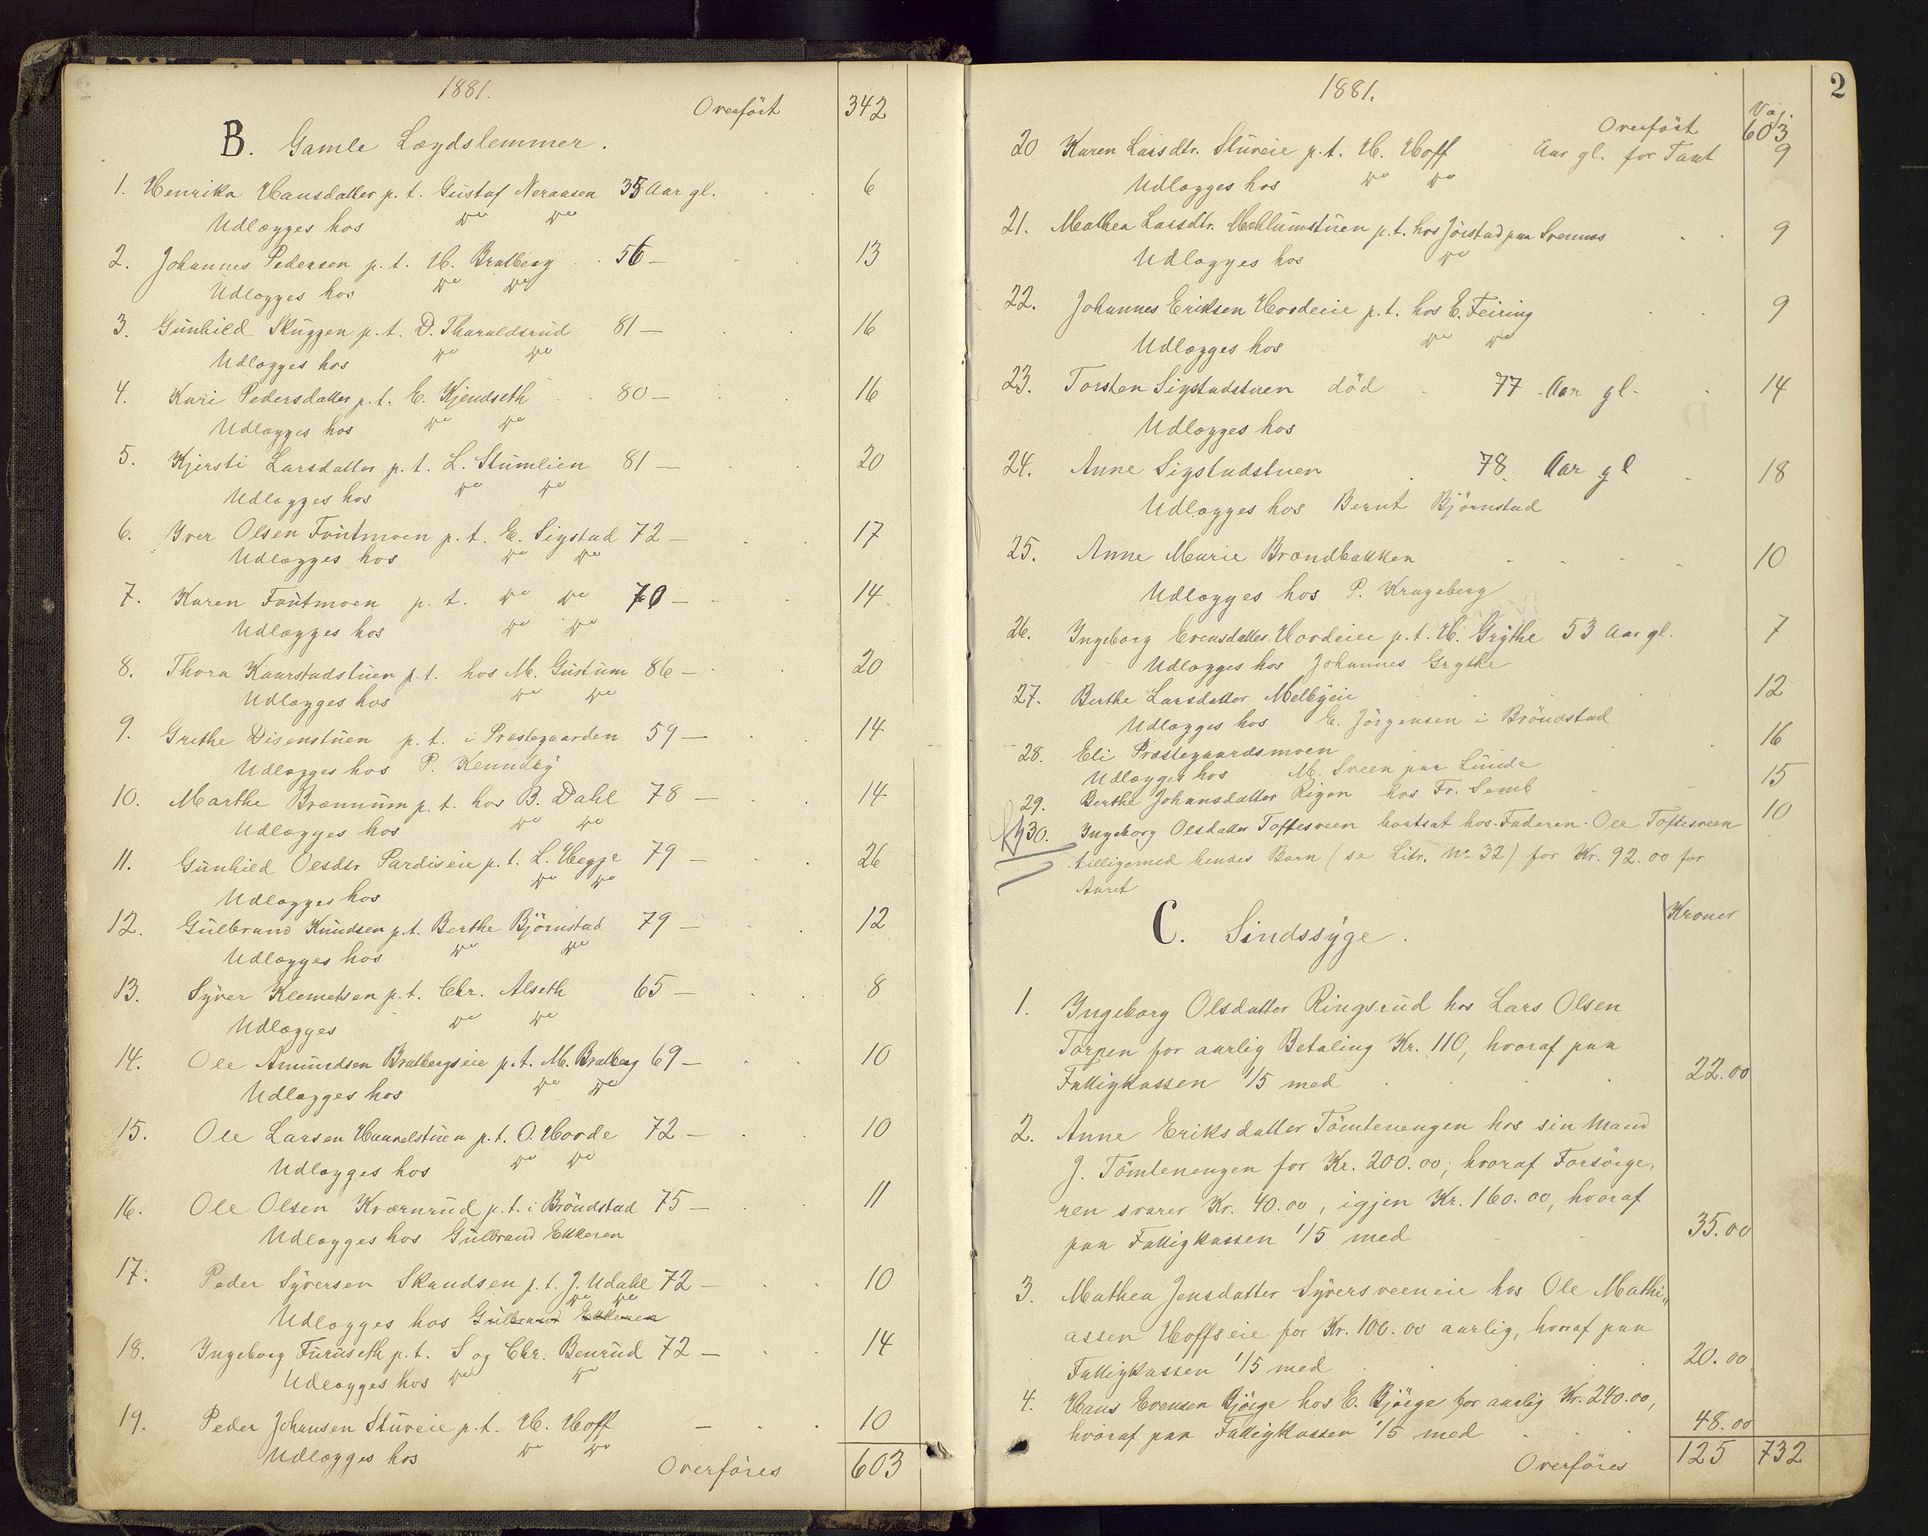 1881.
Overført 342
B. Gamle Lægdslemmer.
1. Henrika Hansdatter p. t. Gustaf Neraasen 35 Aar gl. 6
Udlægges hos do do
2. Johannes Pedersen p. t. H. Bratberg 56 — 13
Udlægges hos do do
3. Gunhild Skuggen p. t. D. Tharaldsrud 81 — 16
Udlægges hos do do
4. Kari Pedersdatter p. t. E. Kjendseth 80 — 16
Udlægges hos do do
5. Kjersti Larsdatter p. t. L. Stumlien 81 — 20
Udlægges hos do do
6. Iver Olsen Foutmoen p. t. E. Sigstad 72 — 17
Udlægges hos do do
7. Karen Foutmoen p. t. do do 70 — 14
Udlægges hos do do
8. Thora Kaarstadstuen p. t. hos M. Gustum 86 — 20
Udlægges hos do do
9. Grethe Disenstuen p. t. i Præstegaarden 59 — 14
Udlægges hos P. Kenneby
10. Marthe Brænnum p. t. hos B. Dahl 78 — 14
Udlægges hos do do
11. Gunhild Olsdtr Paradiseie p. t. L. Hegge 79 — 26
Udlægges hos do do
12. Gulbrand Knudsen p. t. Berthe Bjørnstad 79 — 12
Udlægges hos do do
13. Syver Klemetsen p. t. Chr. Alseth 65 — 8
Udlægges do do
14. Ole Amundsen Bratbergseie p. t. M. Bratberg 69 — 10
Udlægges hos do do
15. Ole Larsen p. t. O. Hovde 72 — 10
Udlægges hos do do
16. Ole Olsen Kværnrud p. t. i Brøndstad 75 — 11
Udlægges hos Gulbrand Ekkeren
17. Peder Syversen Skundsen p. t. J. Udahl 72 — 10
Udlægges hos Gulbrand Ekkeren do do
18. Ingeborg Furuseth p. t. S og Chr. Benrud 72 — 14
Udlægges hos do do
19. Peder Johansen Stuveie p. t. H. Hoff — 10
Udlægges hos do do
Overføres 603
1881. 2
Overført 603
20 Karen Larsdtr. Stuveie p. t. H. Hoff Aar gl. for Tant 9
Udlægges hos do do
21. Mathea Larsdtr. Mehlumstuen p. t. hos Jørstad paa 9
Udlægges hos do
22. Johannes Eriksen Hovdeie p. t. hos E. Feiring 9
Udlægges hos do do
23. Torsten Sigstadstuen død 77 Aar gl. 14
Udlægges hos
24. Anne Sigstadstuen 78 Aar gl 18
Udlægges hos Bernt Bjørnstad
25. Anne Marie Brændbakken 10
Udlægges hos P. Krageberg
26. Ingeborg Evensdatter Hovdeie p. t. H. Grythe 53 Aar gl. 7
Udlægges hos Johannes Grythe
27. Berthe Larsdatter Melbyeie 12
Udlægges hos E. Jørgensen i Brøndstad
28. Eli Præstegaardsmoen 16
Udlægges hos M. Sveen paa Lunde
29. Berthe Johansdatter Rigen hos Fr. Semb 15
30. Ingeborg Olsdatter Toftesveen bortsat hos Faderen Ole Toftesveen 10
tilligemed hendes Barn (se Litr. No 32) for Kr. 92.00 for
Aaret
Kroner
C. Sindssyge.
1. Ingeborg Olsdatter Ringsrud hos Lars Olsen
Torpen for aarlig Betaling Kr. 110, hvoraf paa
Fattigkassen 1/5 med 22.00
2. Anne Eriksdatter Tømtenengen hos sin Mand
J. Tømtenengen for Kr. 200.00; hvoraf Forsørge,
ren svarer Kr. 40.00, igjen Kr. 160.00, hvoraf
paa Fattigkassen 1/5 med 35.00
3. Mathea Jensdatter Syversveeneie hos Ole Mathi„
assen Hoffseie for Kr. 100.00 aarlig, hvoraf paa
Fattigkassen 1/5 med 20.00
4. Hans Evensen Bjørge hos E. Bjørge for aarlig Kr. 240.00,
hvoraf paa Fattigkassen 1/5 med 48.00
Overføres 125 732